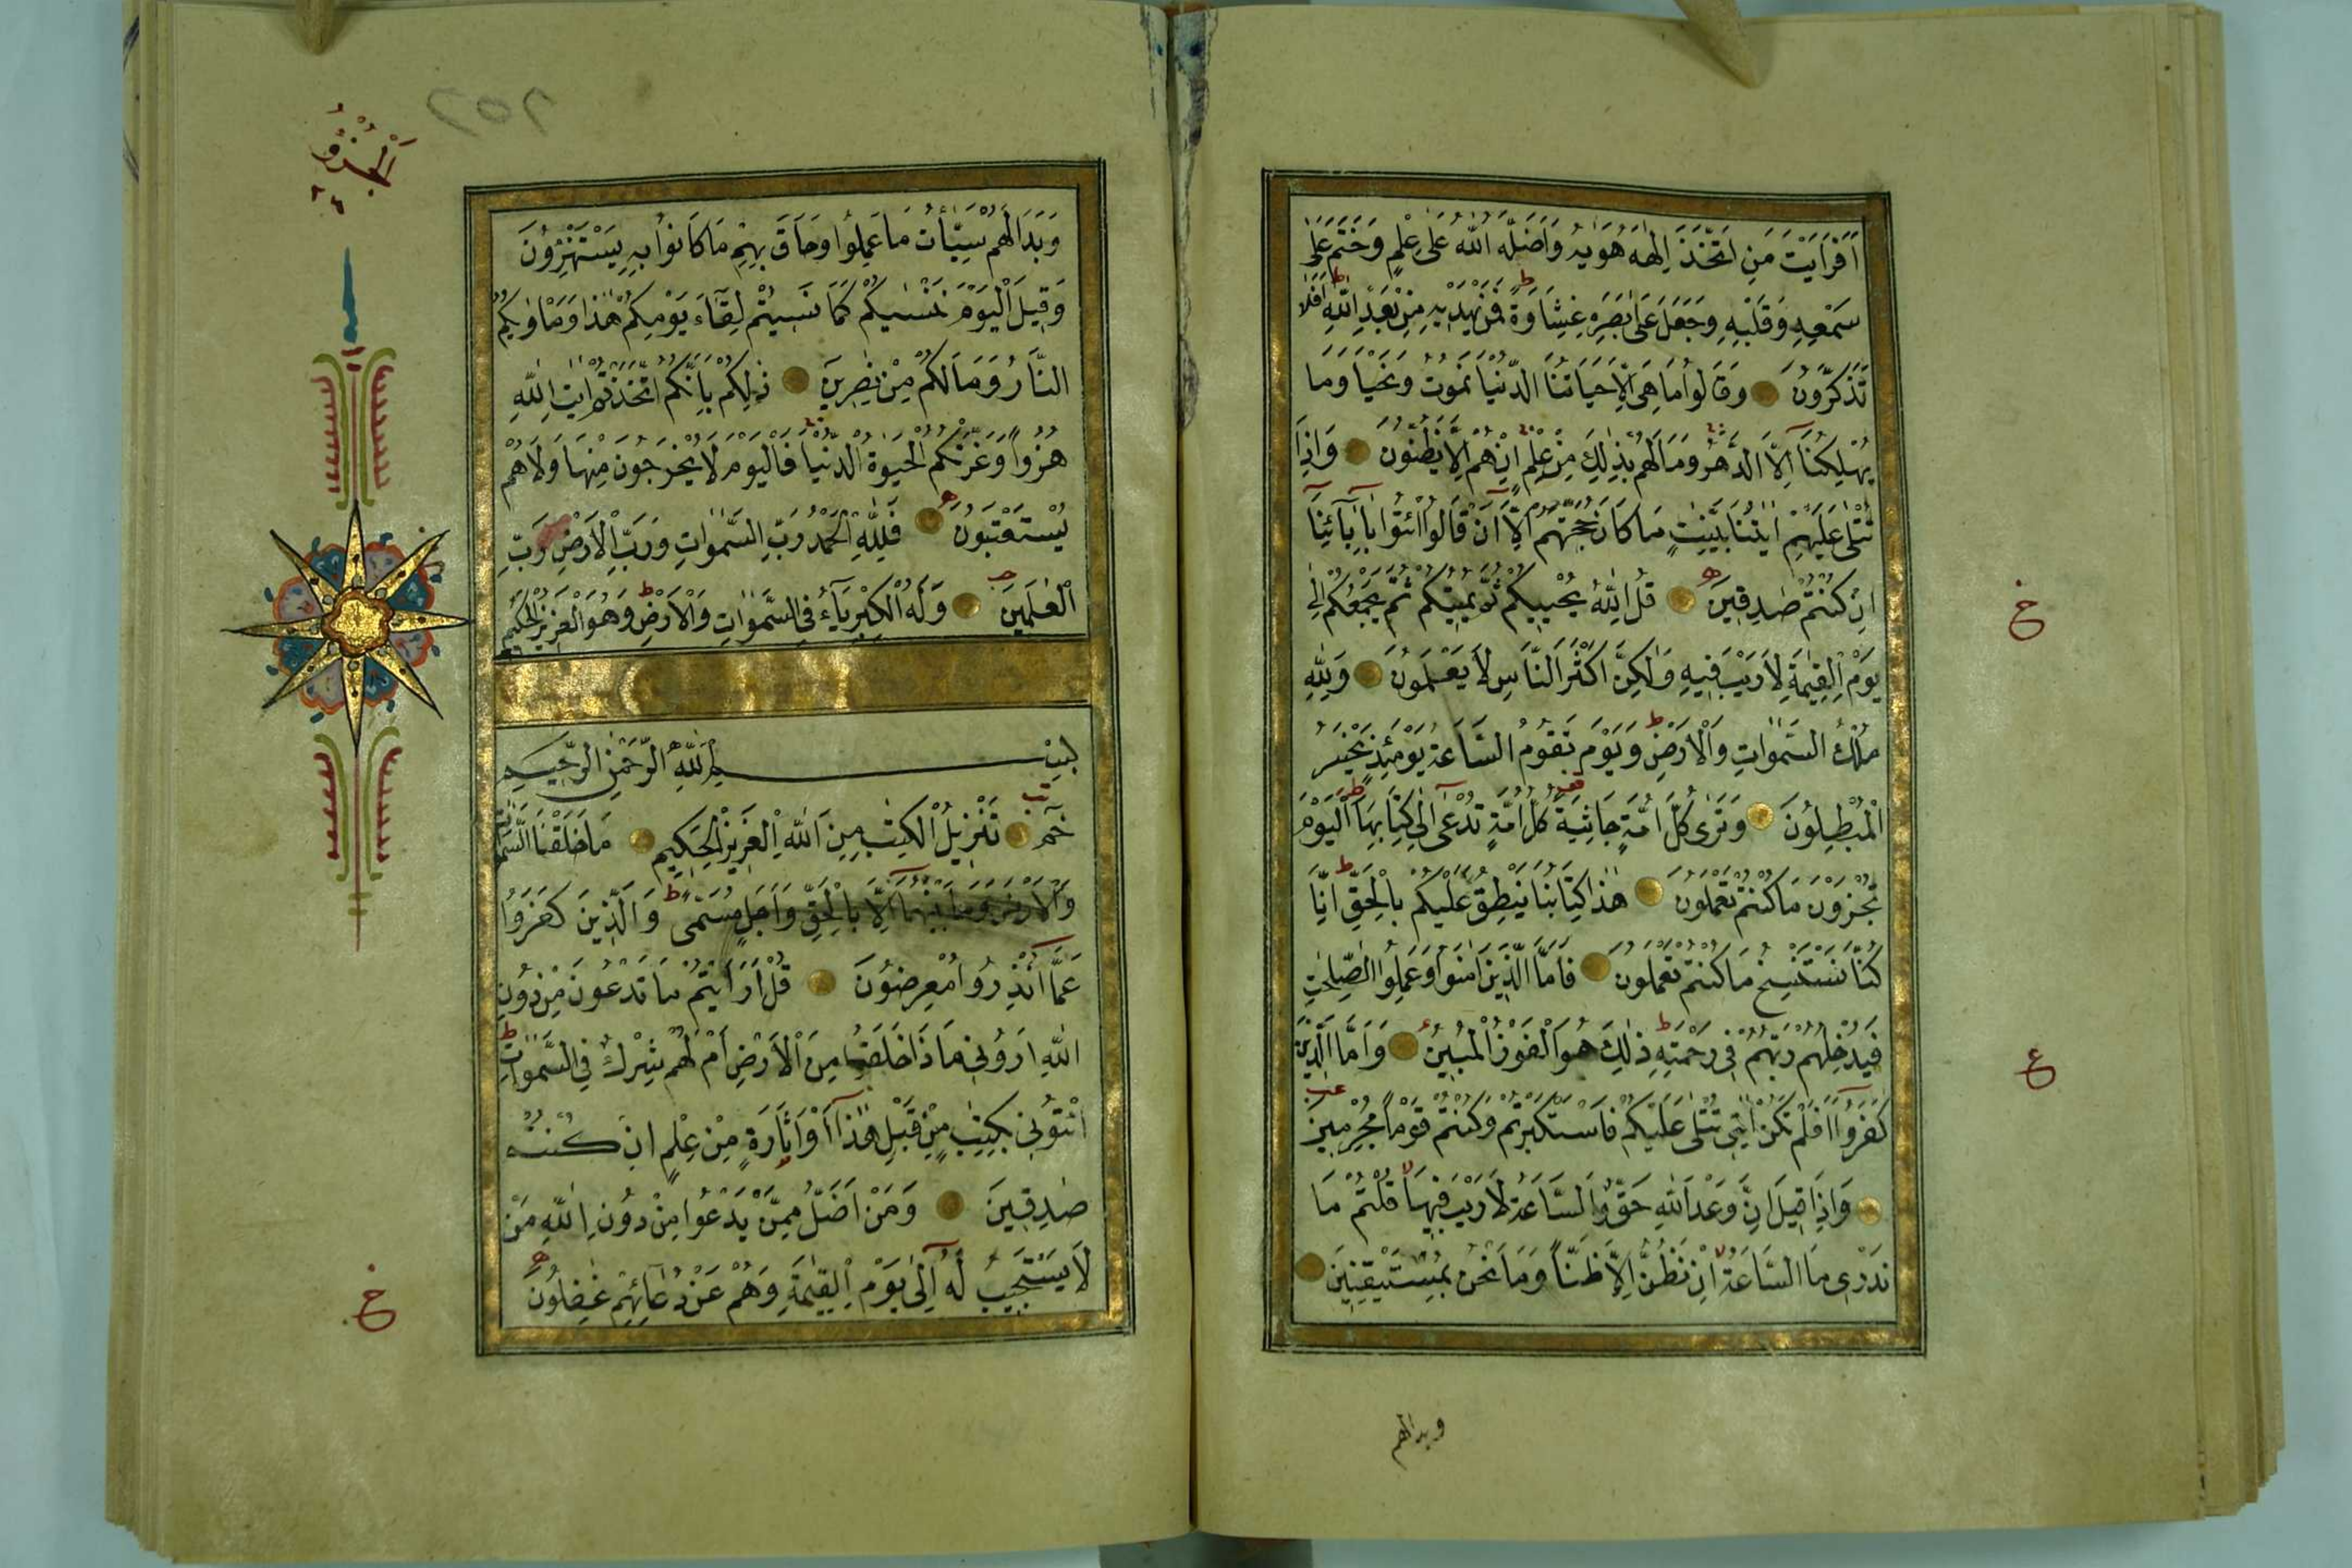 اَفَرَاَيْتَ مَنِ اتَّخَذَ اِلٰهَهُ هَوٰيهُ وَاَضَلَّهُ اللّٰهُ عَلٰى عِلْمٍ وَخَتَمَ عَلٰى
سَمْعِهِ وَقَلْبِهِ وَجَعَلَ عَلٰى بَصَرِهِ غِشَاوَةً فَمَنْ يَهْدِيهِ مِنْ بَعْدِ اللّٰهِ اَفَلَا
تَذَكَّرُونَ وَقَالُوا مَا هِىَ اِلَّا حَيَاتُنَا الدُّنْيَا نَمُوتُ وَنَحْيَا وَمَا
يُهْلِكُنَا اِلَّا الدَّهْرُ وَمَا لَهُمْ بِذٰلِكَ مِنْ عِلْمٍ اِنْ هُمْ اِلَّا يَظُنُّونَ وَاِذَا
تُتْلٰى عَلَيْهِمْ اٰيَاتُنَا بَيِّنٰتٍ مَا كَانَ حُجَّتَهُمْ اِلَّا اَنْ قَالُوا ائْتُوا بِاٰبَآئِنَا
اِنْ كُنْتُمْ صٰدِقِينَ قُلِ اللّٰهُ يُحْيِيكُمْ ثُمَّ يُمِيتُكُمْ ثُمَّ يَجْمَعُكُمْ اِلٰى
يَوْمِ الْقِيٰمَةِ لَا رَيْبَ فِيهِ وَلٰكِنَّ اَكْثَرَ النَّاسِ لَا يَعْلَمُونَ وَلِلّٰهِ
مُلْكُ السَّمٰوَاتِ وَالْاَرْضِ وَيَوْمَ تَقُومُ السَّاعَةُ يَوْمَئِذٍ يَخْسَرُ
الْمُبْطِلُونَ وَتَرٰى كُلَّ اُمَّةٍ جَاثِيَةً كُلُّ اُمَّةٍ تُدْعٰى اِلٰى كِتَابِهَا اَلْيَوْمَ
تُجْزَوْنَ مَا كُنْتُمْ تَعْمَلُونَ هٰذَا كِتَابُنَا يَنْطِقُ عَلَيْكُمْ بِالْحَقِّ اِنَّا
كُنَّا نَسْتَنْسِخُ مَا كُنْتُمْ تَعْمَلُونَ فَاَمَّا الَّذِينَ اٰمَنُوا وَعَمِلُوا الصّٰلِحٰتِ
فَيُدْخِلُهُمْ رَبُّهُمْ فِى رَحْمَتِهِ ذٰلِكَ هُوَ الْفَوْزُ الْمُبِينُ وَاَمَّا الَّذِينَ
كَفَرُوا اَفَلَمْ تَكُنْ اٰيٰتِى تُتْلٰى عَلَيْكُمْ فَاسْتَكْبَرْتُمْ وَكُنْتُمْ قَوْمًا مُجْرِمِينَ
وَاِذَا قِيلَ اِنَّ وَعْدَ اللّٰهِ حَقٌّ وَالسَّاعَةُ لَا رَيْبَ فِيهَا قُلْتُمْ مَا
نَدْرِى مَا السَّاعَةُ اِنْ نَظُنُّ اِلَّا ظَنًّا وَمَا نَحْنُ بِمُسْتَيْقِنِينَ
خ
ع
وبدالهم
٢٥٢
اَلْجُزْؤُ
٢٦
وَبَدَا لَهُمْ سَيِّاٰتُ مَا عَمِلُوا وَحَاقَ بِهِمْ مَا كَانُوا بِهِ يَسْتَهْزِؤُنَ
وَقِيلَ الْيَوْمَ نَنْسٰيكُمْ كَمَا نَسِيتُمْ لِقَآءَ يَوْمِكُمْ هٰذَا وَمَاْوٰيكُمُ
النَّارُ وَمَا لَكُمْ مِنْ نٰصِرِينَ ذٰلِكُمْ بِاَنَّكُمُ اتَّخَذْتُمْ اٰيٰتِ اللّٰهِ
هُزُوًا وَغَرَّتْكُمُ الْحَيٰوةُ الدُّنْيَا فَالْيَوْمَ لَا يُخْرَجُونَ مِنْهَا وَلَا هُمْ
يُسْتَعْتَبُونَ فَلِلّٰهِ الْحَمْدُ رَبِّ السَّمٰوَاتِ وَرَبِّ الْاَرْضِ رَبِّ
الْعٰلَمِينَ وَلَهُ الْكِبْرِيَآءُ فِى السَّمٰوَاتِ وَالْاَرْضِ وَهُوَ الْعَزِيزُ الْحَكِيمُ
بِسْمِ اللّٰهِ الرَّحْمٰنِ الرَّحِيمِ
حٰمٓ تَنْزِيلُ الْكِتٰبِ مِنَ اللّٰهِ الْعَزِيزِ الْحَكِيمِ مَا خَلَقْنَا السَّمٰوَاتِ
وَالْاَرْضَ وَمَا بَيْنَهُمَا اِلَّا بِالْحَقِّ وَاَجَلٍ مُسَمًّى وَالَّذِينَ كَفَرُوا
عَمَّا اُنْذِرُوا مُعْرِضُونَ قُلْ اَرَاَيْتُمْ مَا تَدْعُونَ مِنْ دُونِ
اللّٰهِ اَرُونِى مَاذَا خَلَقُوا مِنَ الْاَرْضِ اَمْ لَهُمْ شِرْكٌ فِى السَّمٰوَاتِ
ائْتُونِى بِكِتٰبٍ مِنْ قَبْلِ هٰذَا اَوْ اَثَارَةٍ مِنْ عِلْمٍ اِنْ كُنْتُمْ
صٰدِقِينَ وَمَنْ اَضَلُّ مِمَّنْ يَدْعُوا مِنْ دُونِ اللّٰهِ مَنْ
لَا يَسْتَجِيبُ لَهُ اِلٰى يَوْمِ الْقِيٰمَةِ وَهُمْ عَنْ دُعَآئِهِمْ غٰفِلُونَ
خ